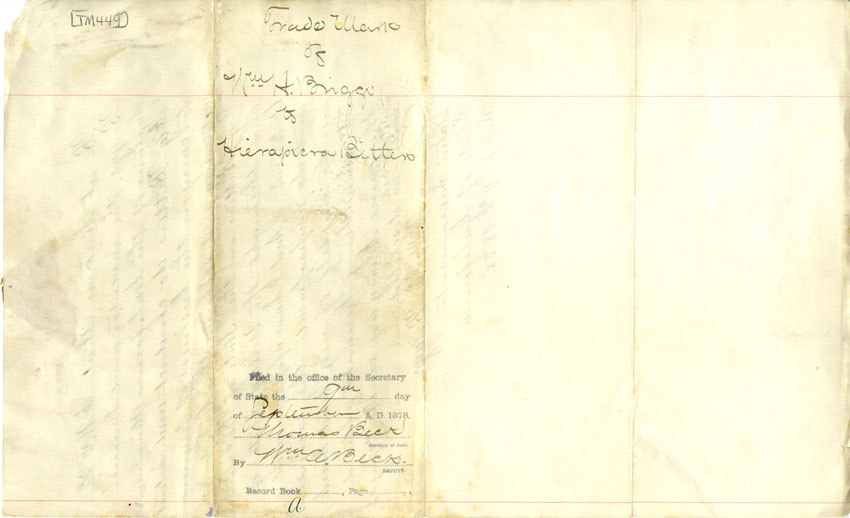 [TM449]
Trade Mark
of
Wm H. Briggs
to
Hierapicra Bitters
Filed in the office of the Secretary
of State the 9th day
of September A. D. 1878.
Thomas Beck
Secretary of State.
By Wm A. Beck.
DEPUTY.
Record Book , Page ,
A